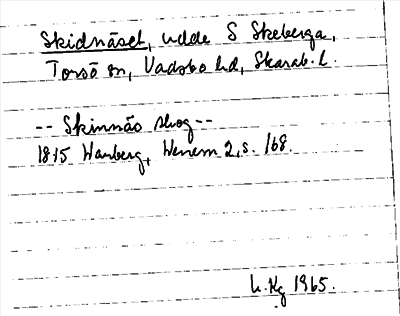 Skidnäset, udde S Skeberga,
Torsö sn, Vadsbo hd, Skarab. l.
-- Skinnäs skog --
1815 Warberg, Wenern 2, s. 168.
h. Kg 1965.